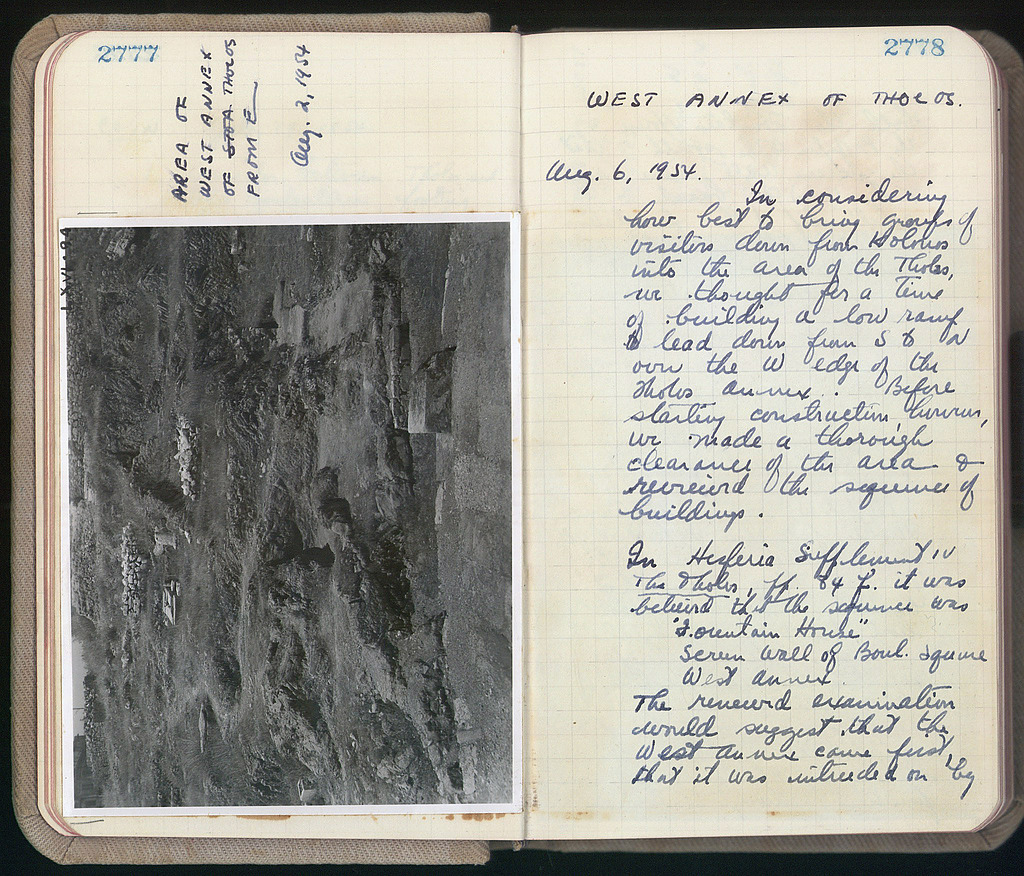 2777
AREA OF
WEST ANNEX
OF STOA THOLOS
FROM E
Aug. 2, 1954
2778
WEST ANNEX OF THOLOS.
Aug. 6, 1954.
In considering
how best to bring groups of
visitors down from Kolonos
into the area of the Tholos,
we thought for a time
of building a low ramp
to lead down from S to N
over the W edge of the
Tholos annex. Before
starting construction, however,
we made a thorough
clearance of the area &
reviewed the sequence of
buildings.
In Hesperia Supplement IV
The Tholos, pp. 84 f. it was
believed that the sequence was
"Fountain House"
Screen Wall of Boul. square
West annex.
The renewed examination
would suggest that the
West annex came first,
that it was intruded on by